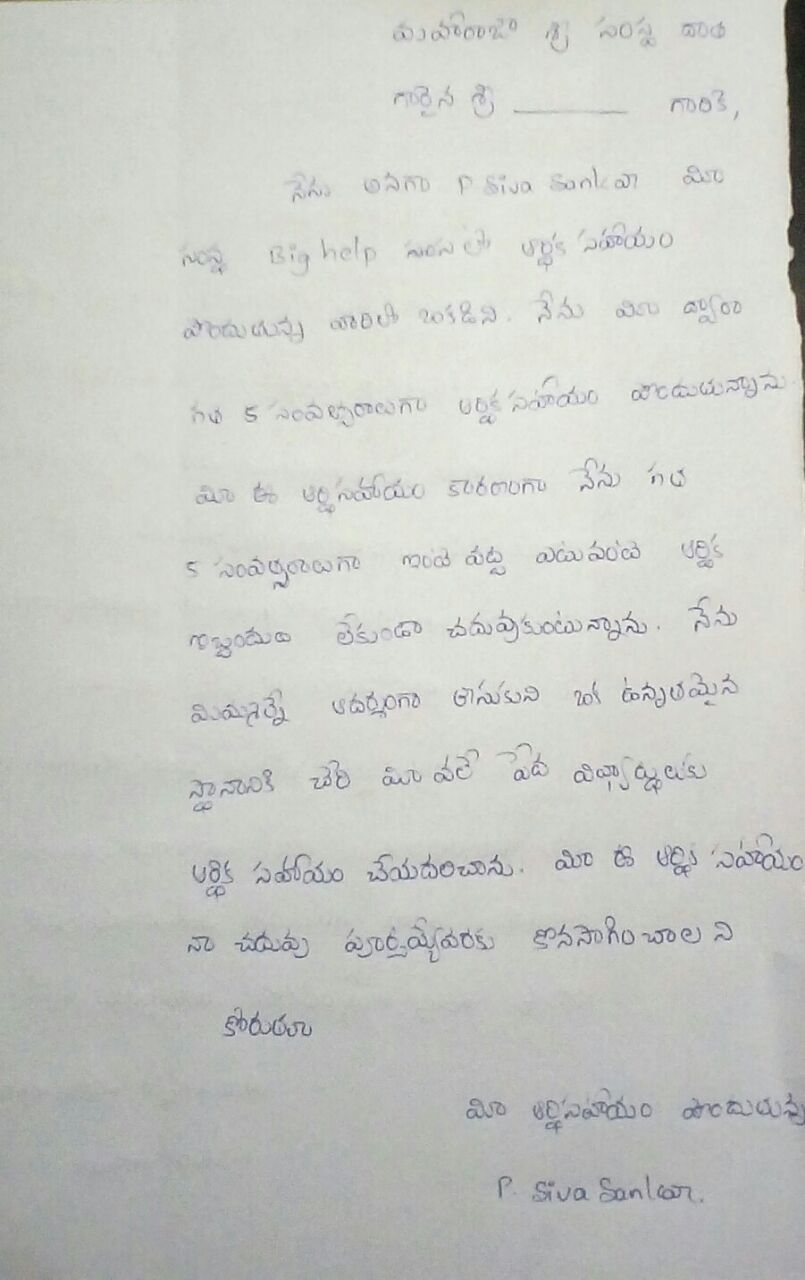 మహారాజా శ్రీ సంస్థ దాత
గారైన శ్రీ ______ గారికి,
నేను అనగా P Siva Sankar మీ
సంస్థ Big help నుంచి ఆర్థిక సహాయం
పొందుతున్న వారిలో ఒకడిని. నేను మీ ద్వారా
గత 5 సంవత్సరాలుగా ఆర్థిక సహాయం పొందుతున్నాను
మీ ఈ ఆర్థిసహాయం కారణంగా నేను గత
5 సంవత్సరాలుగా ఇంటి వద్ద ఎటువంటి ఆర్థిక
ఇబ్బందులు లేకుండా చదువుకుంటున్నాను. నేను
మిమ్మల్నే ఆదర్శంగా తీసుకుని ఒక ఉన్నతమైన
స్థానానికి చేరి మీ వలే పేద విద్యార్థులకు
ఆర్థిక సహాయం చేయదలిచాను. మీ ఈ ఆర్థిక సహాయం
నా చదువు పూర్తయ్యేవరకు కొనసాగించాలని
కోరుతూ
మీ ఆర్థిసహాయం పొందుతున్న
P. Siva Sankar.